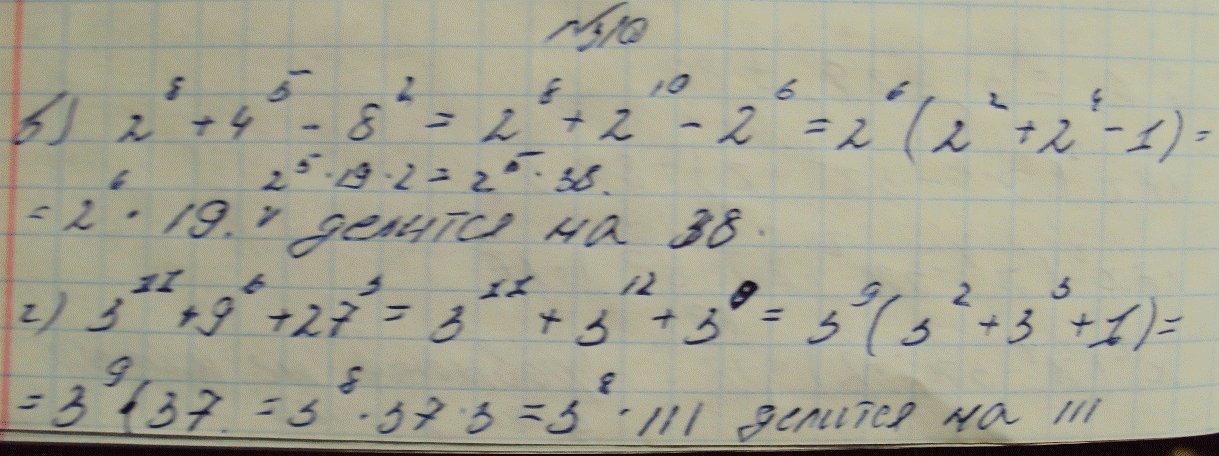 №310
б) 2⁸ + 4⁵ - 8² = 2⁸ + 2¹⁰ - 2⁶ = 2⁶ (2² + 2⁴ - 1) =
2⁵ · 19 · 2 = 2⁵ · 38.
= 2⁶ · 19. делится на 38.
г) 3¹¹ + 9⁶ + 27³ = 3¹¹ + 3¹² + 3⁹ = 3⁹ (3² + 3³ + 1) =
= 3⁹ (37. = 3⁸ · 37 · 3 = 3⁸ · 111 делится на 111